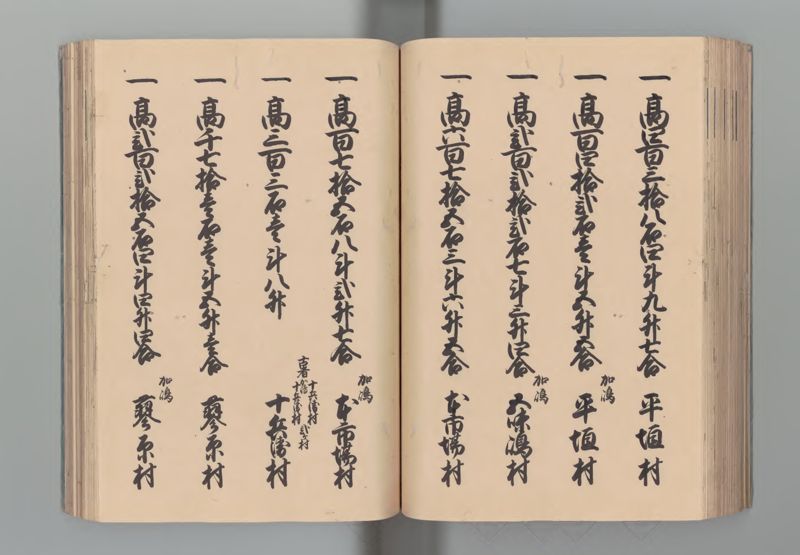 一 高四百三拾八石四斗九升七合 平垣村
一 高百四拾弐石壱斗五升六合 加嶋 平垣村
一 高弐百弐拾弐石七斗三升四合 加嶋 五味嶋村
一 高六百七拾五石三斗六升五合 本市場村
一 高百七拾五石八斗弐升七合 加嶋 本市場村
一 高三百三石壱斗八升 十兵衛村
十兵衛村
十兵衛村 弐ヶ村
一 高千七拾壱石壱斗五升壱合 蓼原村
一 高弐百弐拾五石四斗四升四合 加嶋 蓼原村